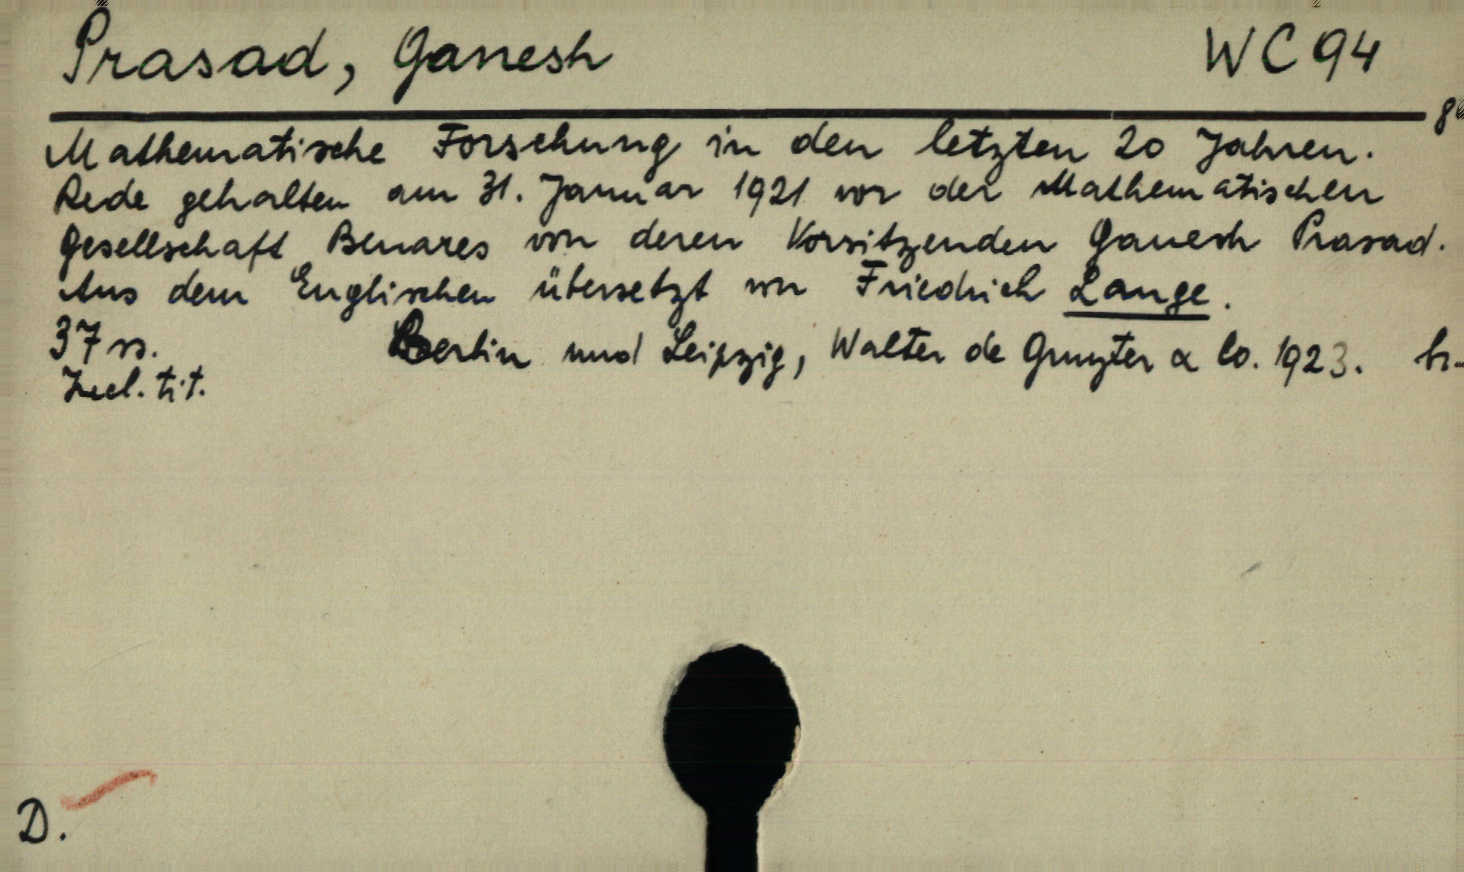 Prasad, Ganesh WC 94
8°
Mathematische Forschung in den letzten 20 Jahren.
Rede gehalten am 31. Januar 1921 vor der Mathematischen
Gesellschaft Benares von deren Vorsitzenden Ganesh Prasad.
Aus dem Englischen übersetzt von Friedrich Lange.
37 ss. Berlin und Leipzig, Walter de Gruyter & Co. 1923. br.
Incl. tit.
D.